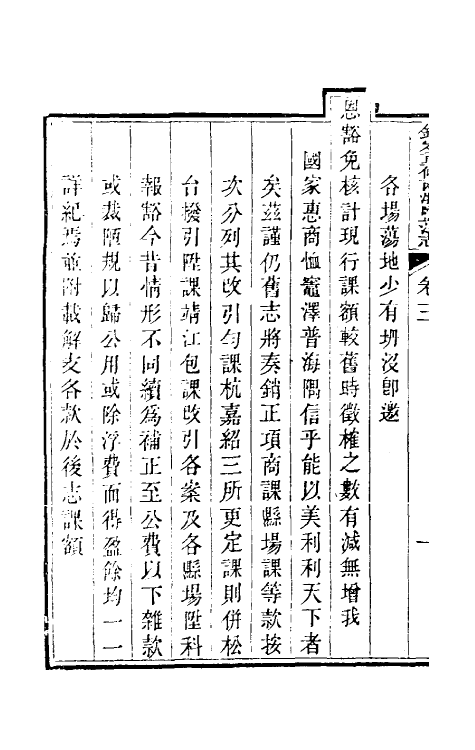 各場蕩地少有坍没卽邀
恩豁免核計現行課額較舊時徵榷之數有減無增我
國家惠商恤竈澤普海隅信乎能以美利利天下者
矣茲謹仍舊志將奏銷正項商課縣場課等款按
次分列其改引勻課杭嘉紹三所更定課則併松
台撥引陞課靖江包課改引各案及各縣場陞科
報豁今昔情形不同續為補正至公費以下雜款
或裁陋規以歸公用或除浮費而得盈餘均一一
詳紀焉並附載解支各款於後志課額
卷三
一